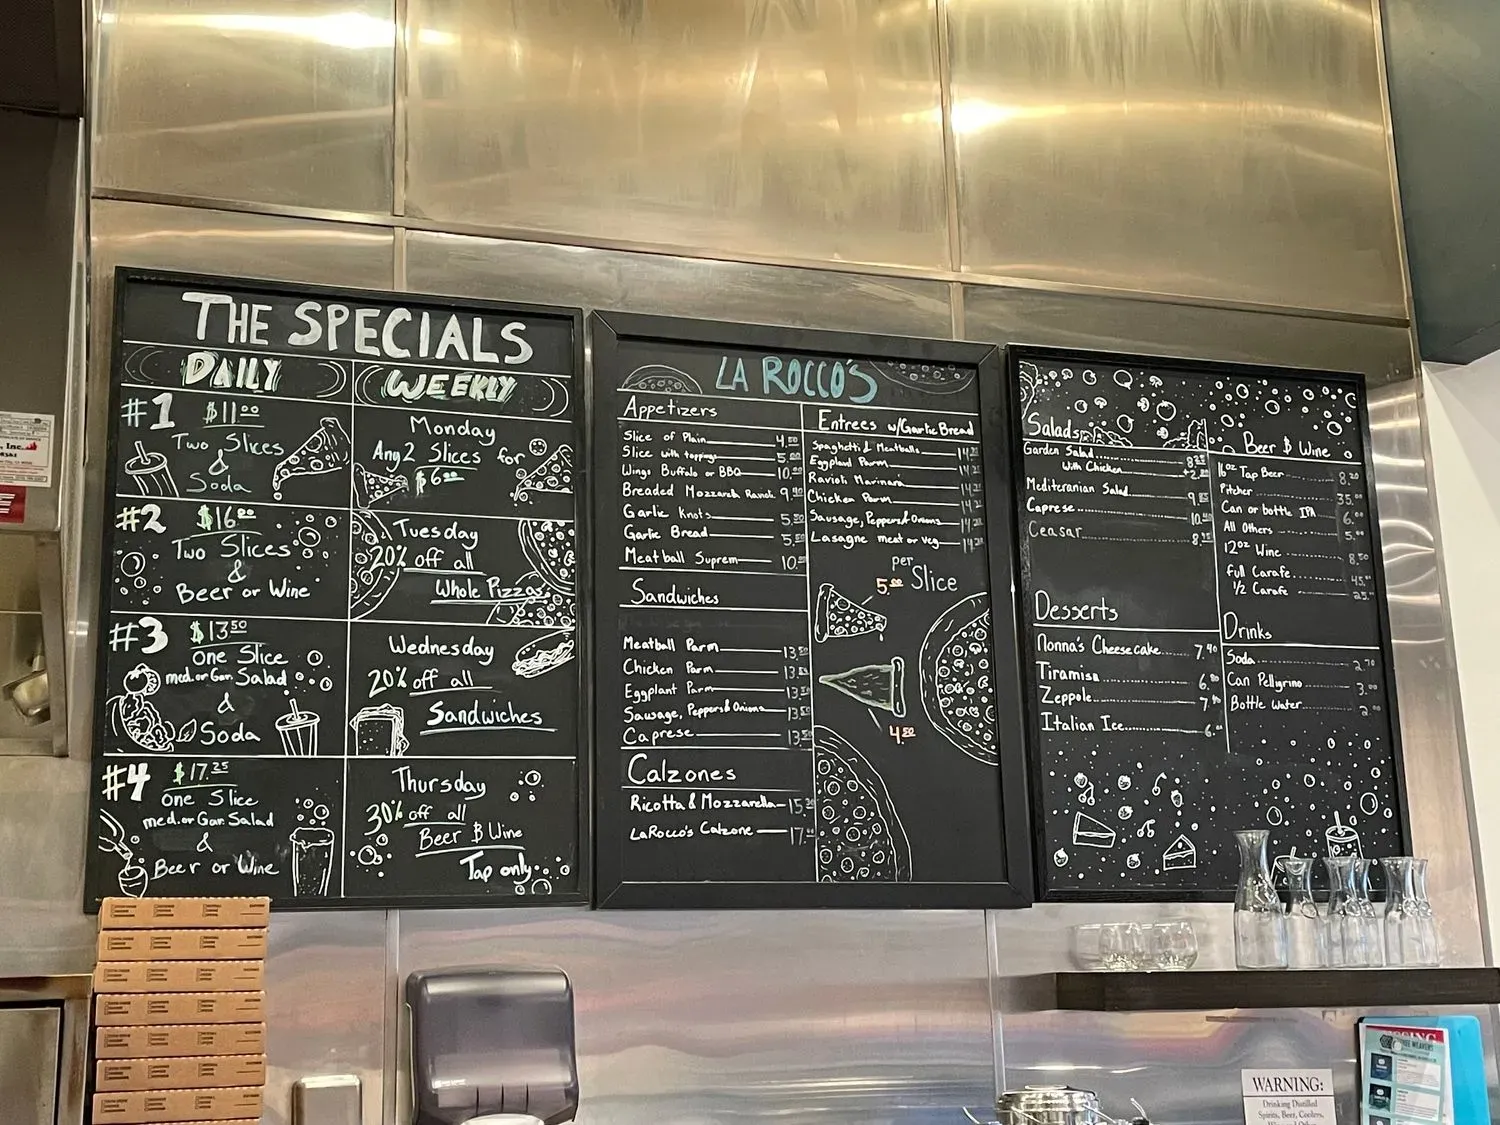 THE SPECIALS
DAILY
#1 $11.00
Two Slices
&
Soda
#2 $16.00
Two Slices
&
Beer or Wine
#3 $13.50
one Slice
med. or Gar. Salad
&
Soda
#4 $17.25
one Slice
med. or Gar. Salad
&
Beer or Wine
WEEKLY
Monday
Any 2 Slices for
$6.00
Tuesday
20% off all
Whole Pizzas
Wednesday
20% off all
Sandwiches
Thursday
30% off all
Beer & Wine
Tap only
LA ROCCO'S
Appetizers
Slice of Plain 4.50
Slice with toppings 5.00
Wings Buffalo or BBQ 10.
Breaded Mozzarella Ravioli 9.
Garlic Knots 5.50
Garlic Bread 5.
Meatball Suprem 10.
Sandwiches
Meatball Parm 13.50
Chicken Parm 13.50
Eggplant Parm 13.50
Sausage, Peppers & Onions 13.50
Caprese 13.50
Calzones
Ricotta & Mozzarella 15.
LaRocco's Calzone 17.
Entrees w/Garlic Bread
Spaghetti & Meatballs 14.
Eggplant Parm 14.
Ravioli Marinara 14.
Chicken Parm 14.
Sausage, Peppers & Onions 14.
Lasagne meat or veg 14.
per
5.00 Slice
4.50
Salads
Garden Salad 8.
With Chicken +2.
Mediteranian Salad 9.
Caprese 10.
Ceasar 8.
Desserts
Nonna's Cheesecake 7.
Tiramisu 6.
Zeppole 7.
Italian Ice 6.
Beer & Wine
16oz Tap Beer 8.
Pitcher 35.00
Can or bottle IPA 6.00
All Others 5.00
12oz Wine 8.50
Full Carafe 45.
1/2 Carafe 25.
Drinks
Soda 2.
Can Pelligrino 3.00
Bottle Water 2.00
Inc.
WARNING:
Drinking Distilled
Spirits, Beer, Coolers,